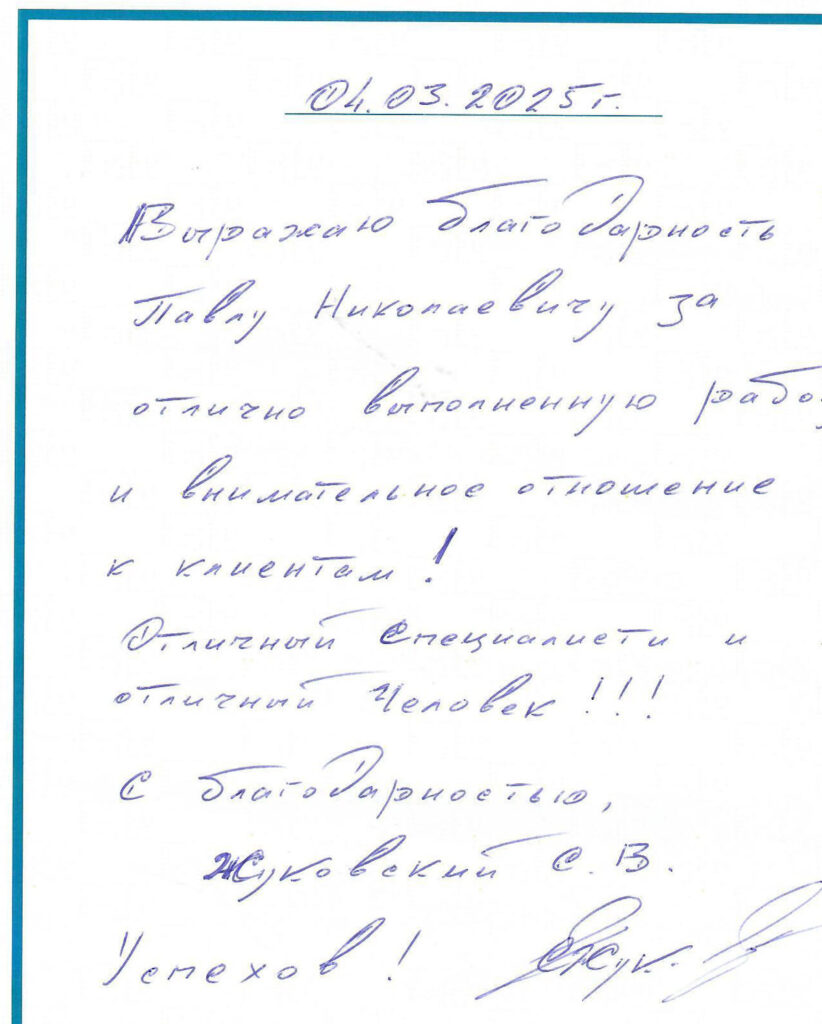 04.03.2025г.
Выражаю благодарность
Павлу Николаевичу за
отлично выполненную рабо
и внимательное отношение
к клиентам!
Отличный Специалисти и
отличный Человек!!!
С благодарностью,
Жуковский С.В.
Успехов! СЖук.